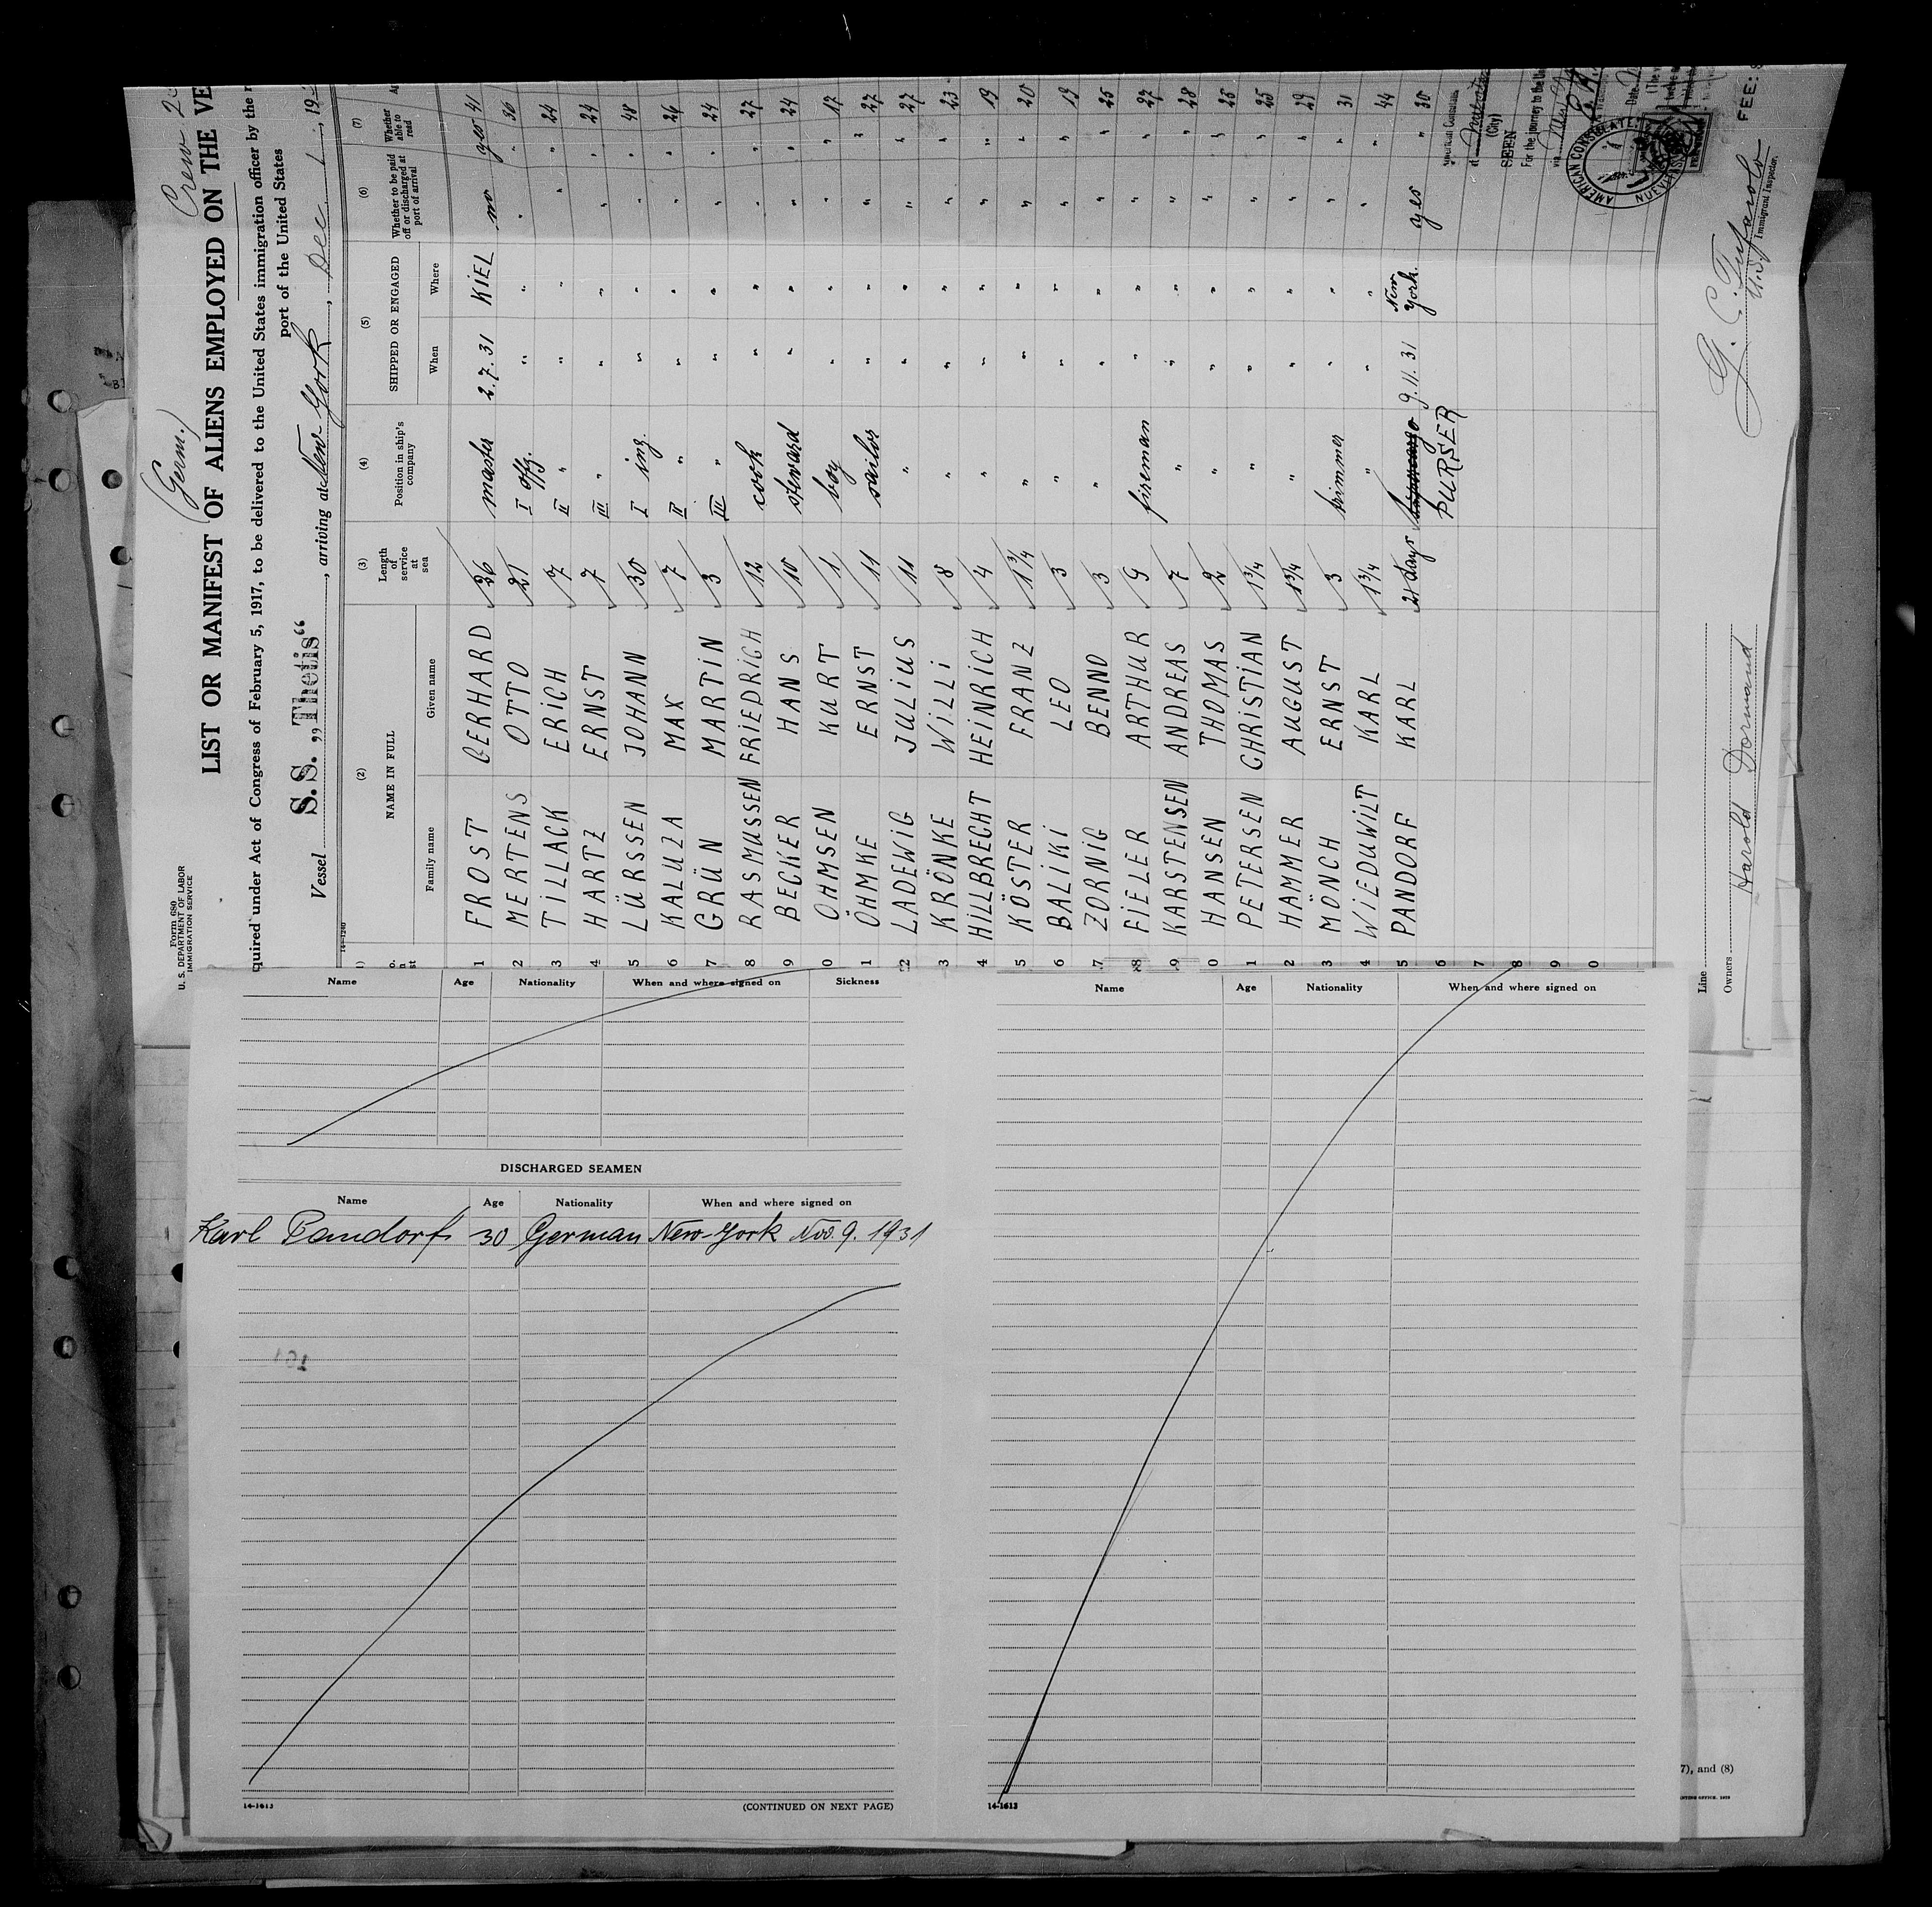 (Germ.)
Crew 2
Form 680
U. S. DEPARTMENT OF LABOR
IMMIGRATION SERVICE
LIST OR MANIFEST OF ALIENS EMPLOYED ON THE VE
quired under Act of Congress of February 5, 1917, to be delivered to the United States immigration officer by the r
port of the United States
Vessel S.S. „Thetis“, arriving at New-York, Dec. 1, 19
14-1240
(2) (3) (4) (5) (6) (7)
NAME IN FULL Length of service at sea Position in ship's company SHIPPED OR ENGAGED Whether to be paid off or discharged at port of arrival Whether able to read
Family name Given name When Where
1 FROST GERHARD 26 master 2.7.31 KIEL no yes 41
2 MERTENS OTTO 21 I offz. " " " " 36
3 TILLACK ERICH 7 II " " " " " 24
4 HARTZ ERNST 7 III " " " " " 24
5 LÜRSSEN JOHANN 30 I ing. " " " " 48
6 KALUZA MAX 7 II " " " " " 26
7 GRÜN MARTIN 3 III " " " " " 24
8 RASMUSSEN FRIEDRICH 12 cook " " " " 27
9 BECKER HANS 10 steward " " " " 24
0 OHMSEN KURT 1 boy " " " " 17
1 ÖHMKE ERNST 11 sailor " " " " 27
2 LADEWIG JULIUS 11 " " " " " 27
3 KRÖNKE WILLI 8 " " " " " 23
4 HILLBRECHT HEINRICH 4 " " " " " 19
5 KÖSTER FRANZ 1 3/4 " " " " " 20
6 BALIKI LEO 3 " " " " " 19
7 ZORNIG BENNO 3 " " " " " 25
8 FIELER ARTHUR 9 fireman " " " " 27
9 KARSTENSEN ANDREAS 7 " " " " " 28
0 HANSEN THOMAS 2 " " " " " 26
1 PETERSEN CHRISTIAN 1 3/4 " " " " " 25
2 HAMMER AUGUST 1 3/4 " " " " " 29
3 MÖNCH ERNST 3 trimmer " " " " 31
4 WIEDUWILT KARL 1 3/4 " " " " " 44
5 PANDORF KARL 21 days PURSER 9.11.31 New York. yes " 30
6
7
8
9
0
American Consulate
at
(City)
SEEN
For the journey to the Un
via
Date
AMERICAN CONSULATE
NUEVITAS
FEE: $
G. C. Tufarolo
U.S. Immigrant Inspector.
Line
Owners Harold Dormand
Name Age Nationality When and where signed on Sickness
DISCHARGED SEAMEN
Name Age Nationality When and where signed on
Karl Pandorf 30 German New-York Nov. 9. 1931
101
14-1613
(CONTINUED ON NEXT PAGE)
Name Age Nationality When and where signed on
14-1613
7), and (8)